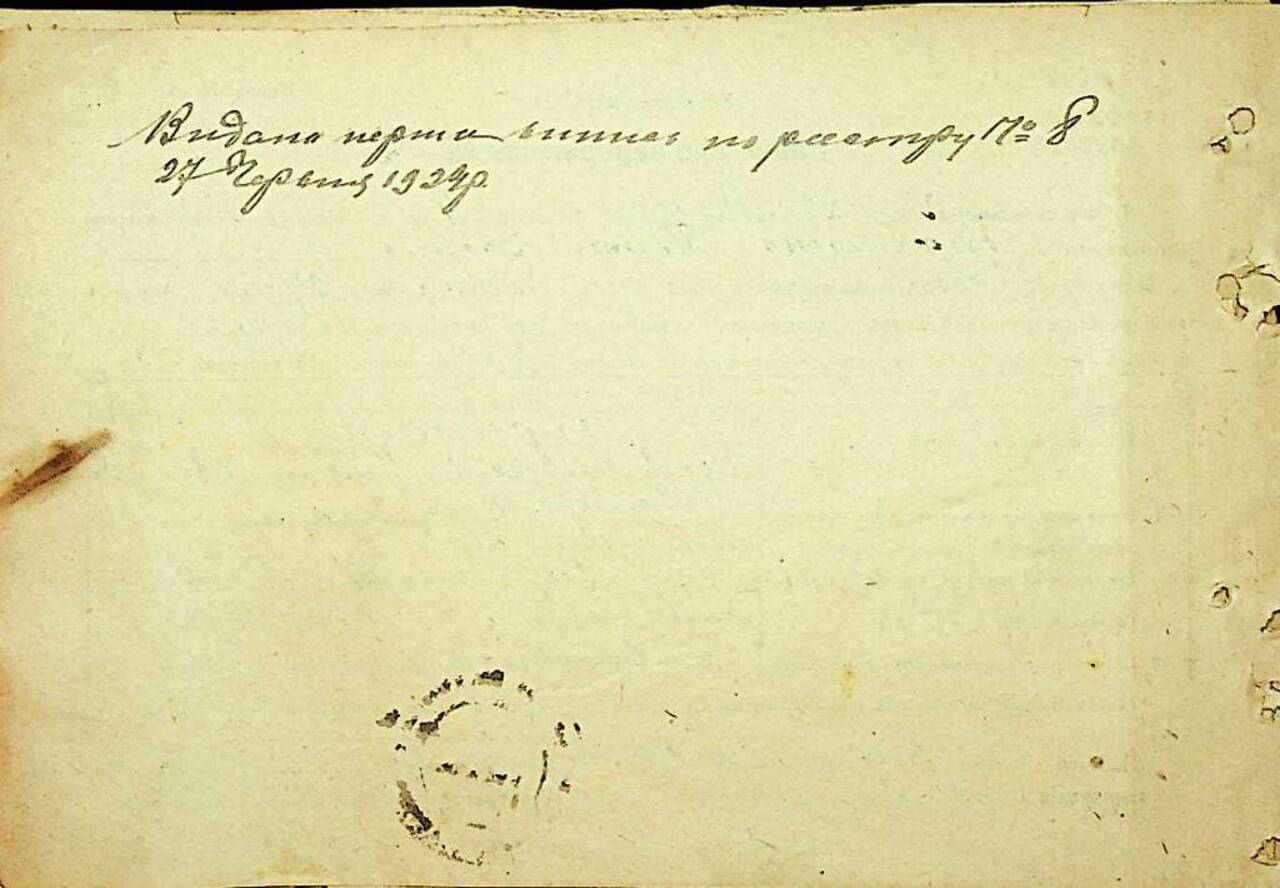 Видана перша випись по реестру № 8
27 Червня 1924р.